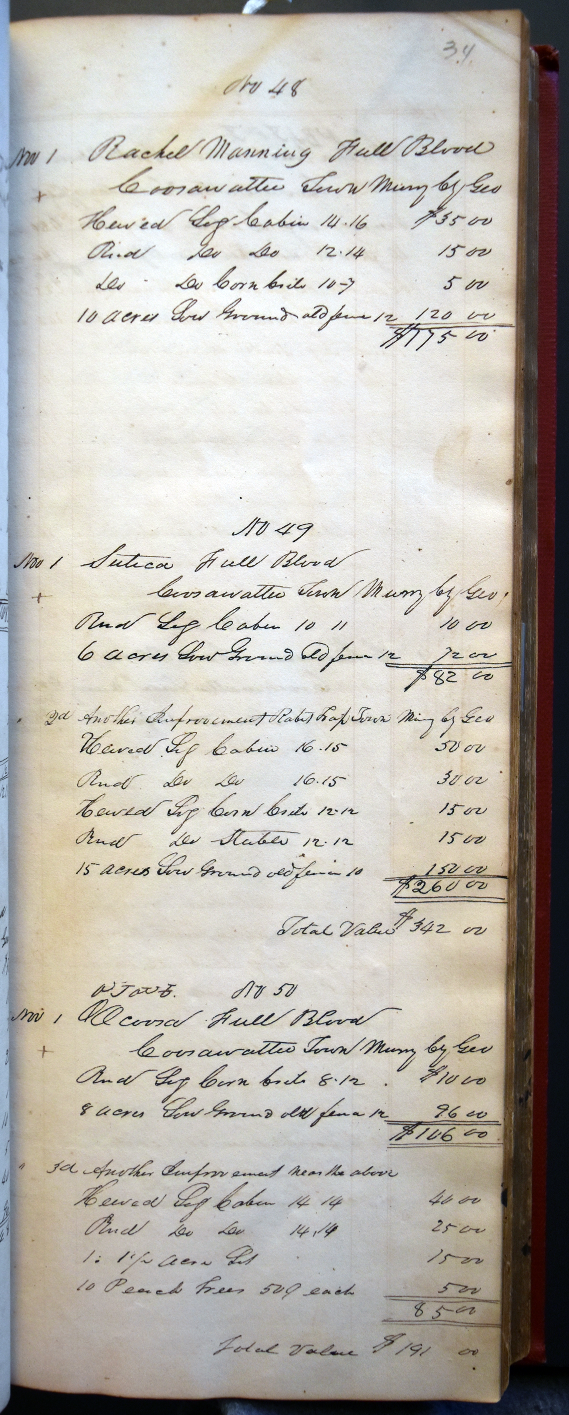 34
No 48
Nov 1 Rachel Manning Full Blood
+ Coosawattee Town Murry Cty Geo
Hewed Log Cabin 14.16 $35 00
Rnd Do Do 12.14 15 00
Do Do Corn Crib 10-7 5 00
10 acres Low Ground old fence 12 120 00
$175 00
No 49
Nov 1 Full Blood
+ Coosawattee Town Murry Cty Geo
Rnd Log Cabin 10 11 10 00
6 acres Low Ground old fence 12 72 00
$82 00
" 2d Another Improvement Rabit Trap Town Murry Cty Geo
Hewed Log Cabin 16.15 50 00
Rnd Do Do 16.15 30 00
Hewed Log Corn Crib 12.12 15 00
Rnd Do Stable 12.12 15 00
15 acres Low Ground old fence 10 150 00
$260 00
Total Value $342 00
No 50
Nov 1 Full Blood
+ Coosawattee Town Murry Cty Geo
Rnd Log Corn Crib 8.12 $10 00
8 acres Low Ground old fence 12 96 00
$106 00
" 3d Another Improvement near the above
Hewed Log Cabin 14.14 40 00
Rnd Do Do 14.14 25 00
1: 1½ acre Lot 15 00
10 Peach Trees 50¢ each 5 00
85 00
Total Value $191 00